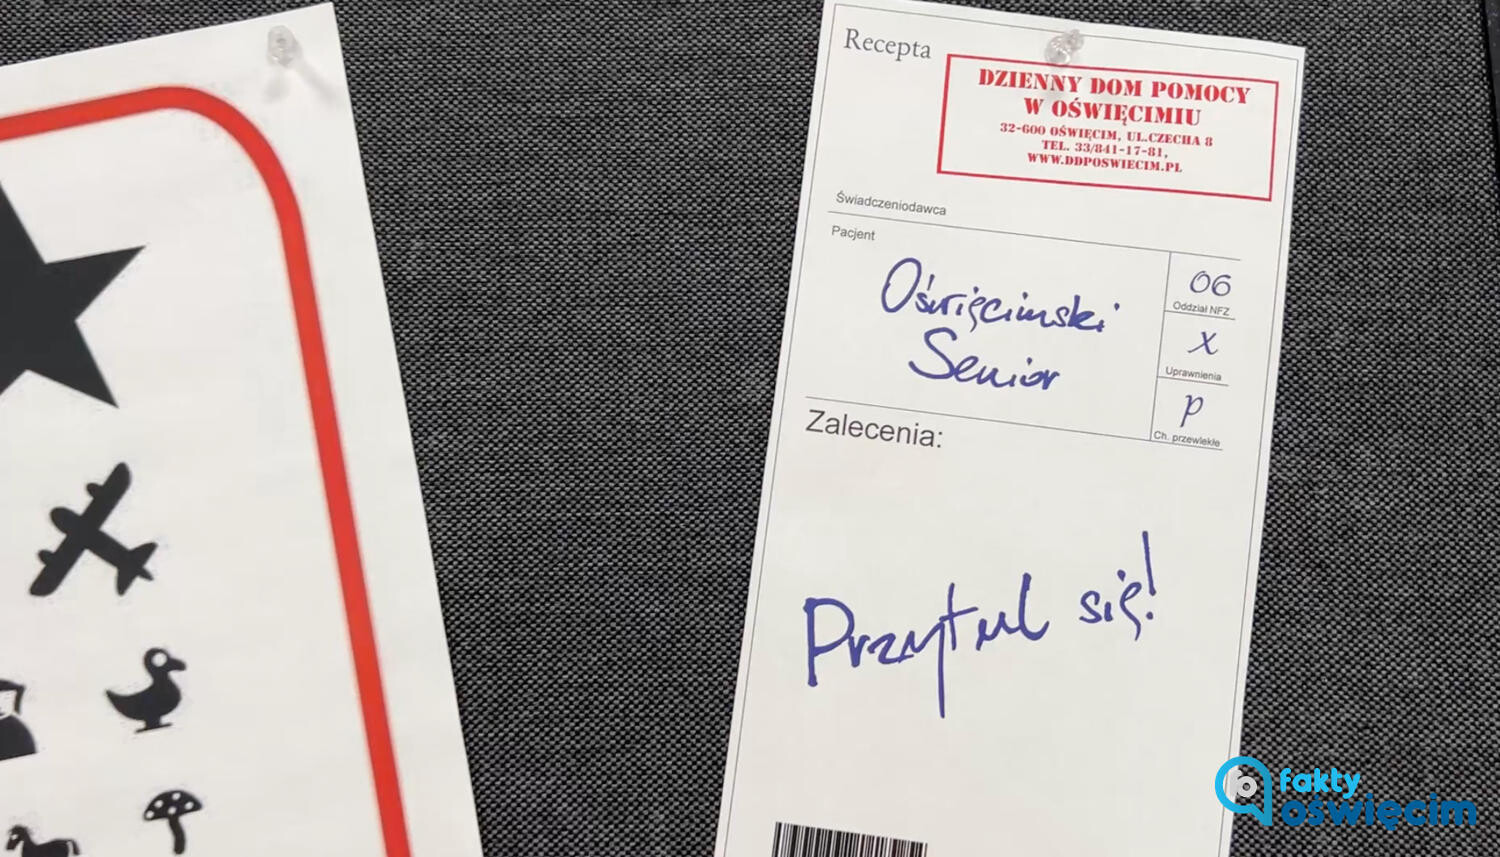 Recepta
DZIENNY DOM POMOCY
W OŚWIĘCIMIU
32-600 OŚWIĘCIM, UL.CZECHA 8
TEL. 33/841-17-81,
WWW.DDPOSWIECIM.PL
Świadczeniodawca
Pacjent
Oświęcimski
Senior
06
Oddział NFZ
x
Uprawnienia
p
Ch. przewlekłe
Zalecenia:
Przytul się!
fakty
oświęcim